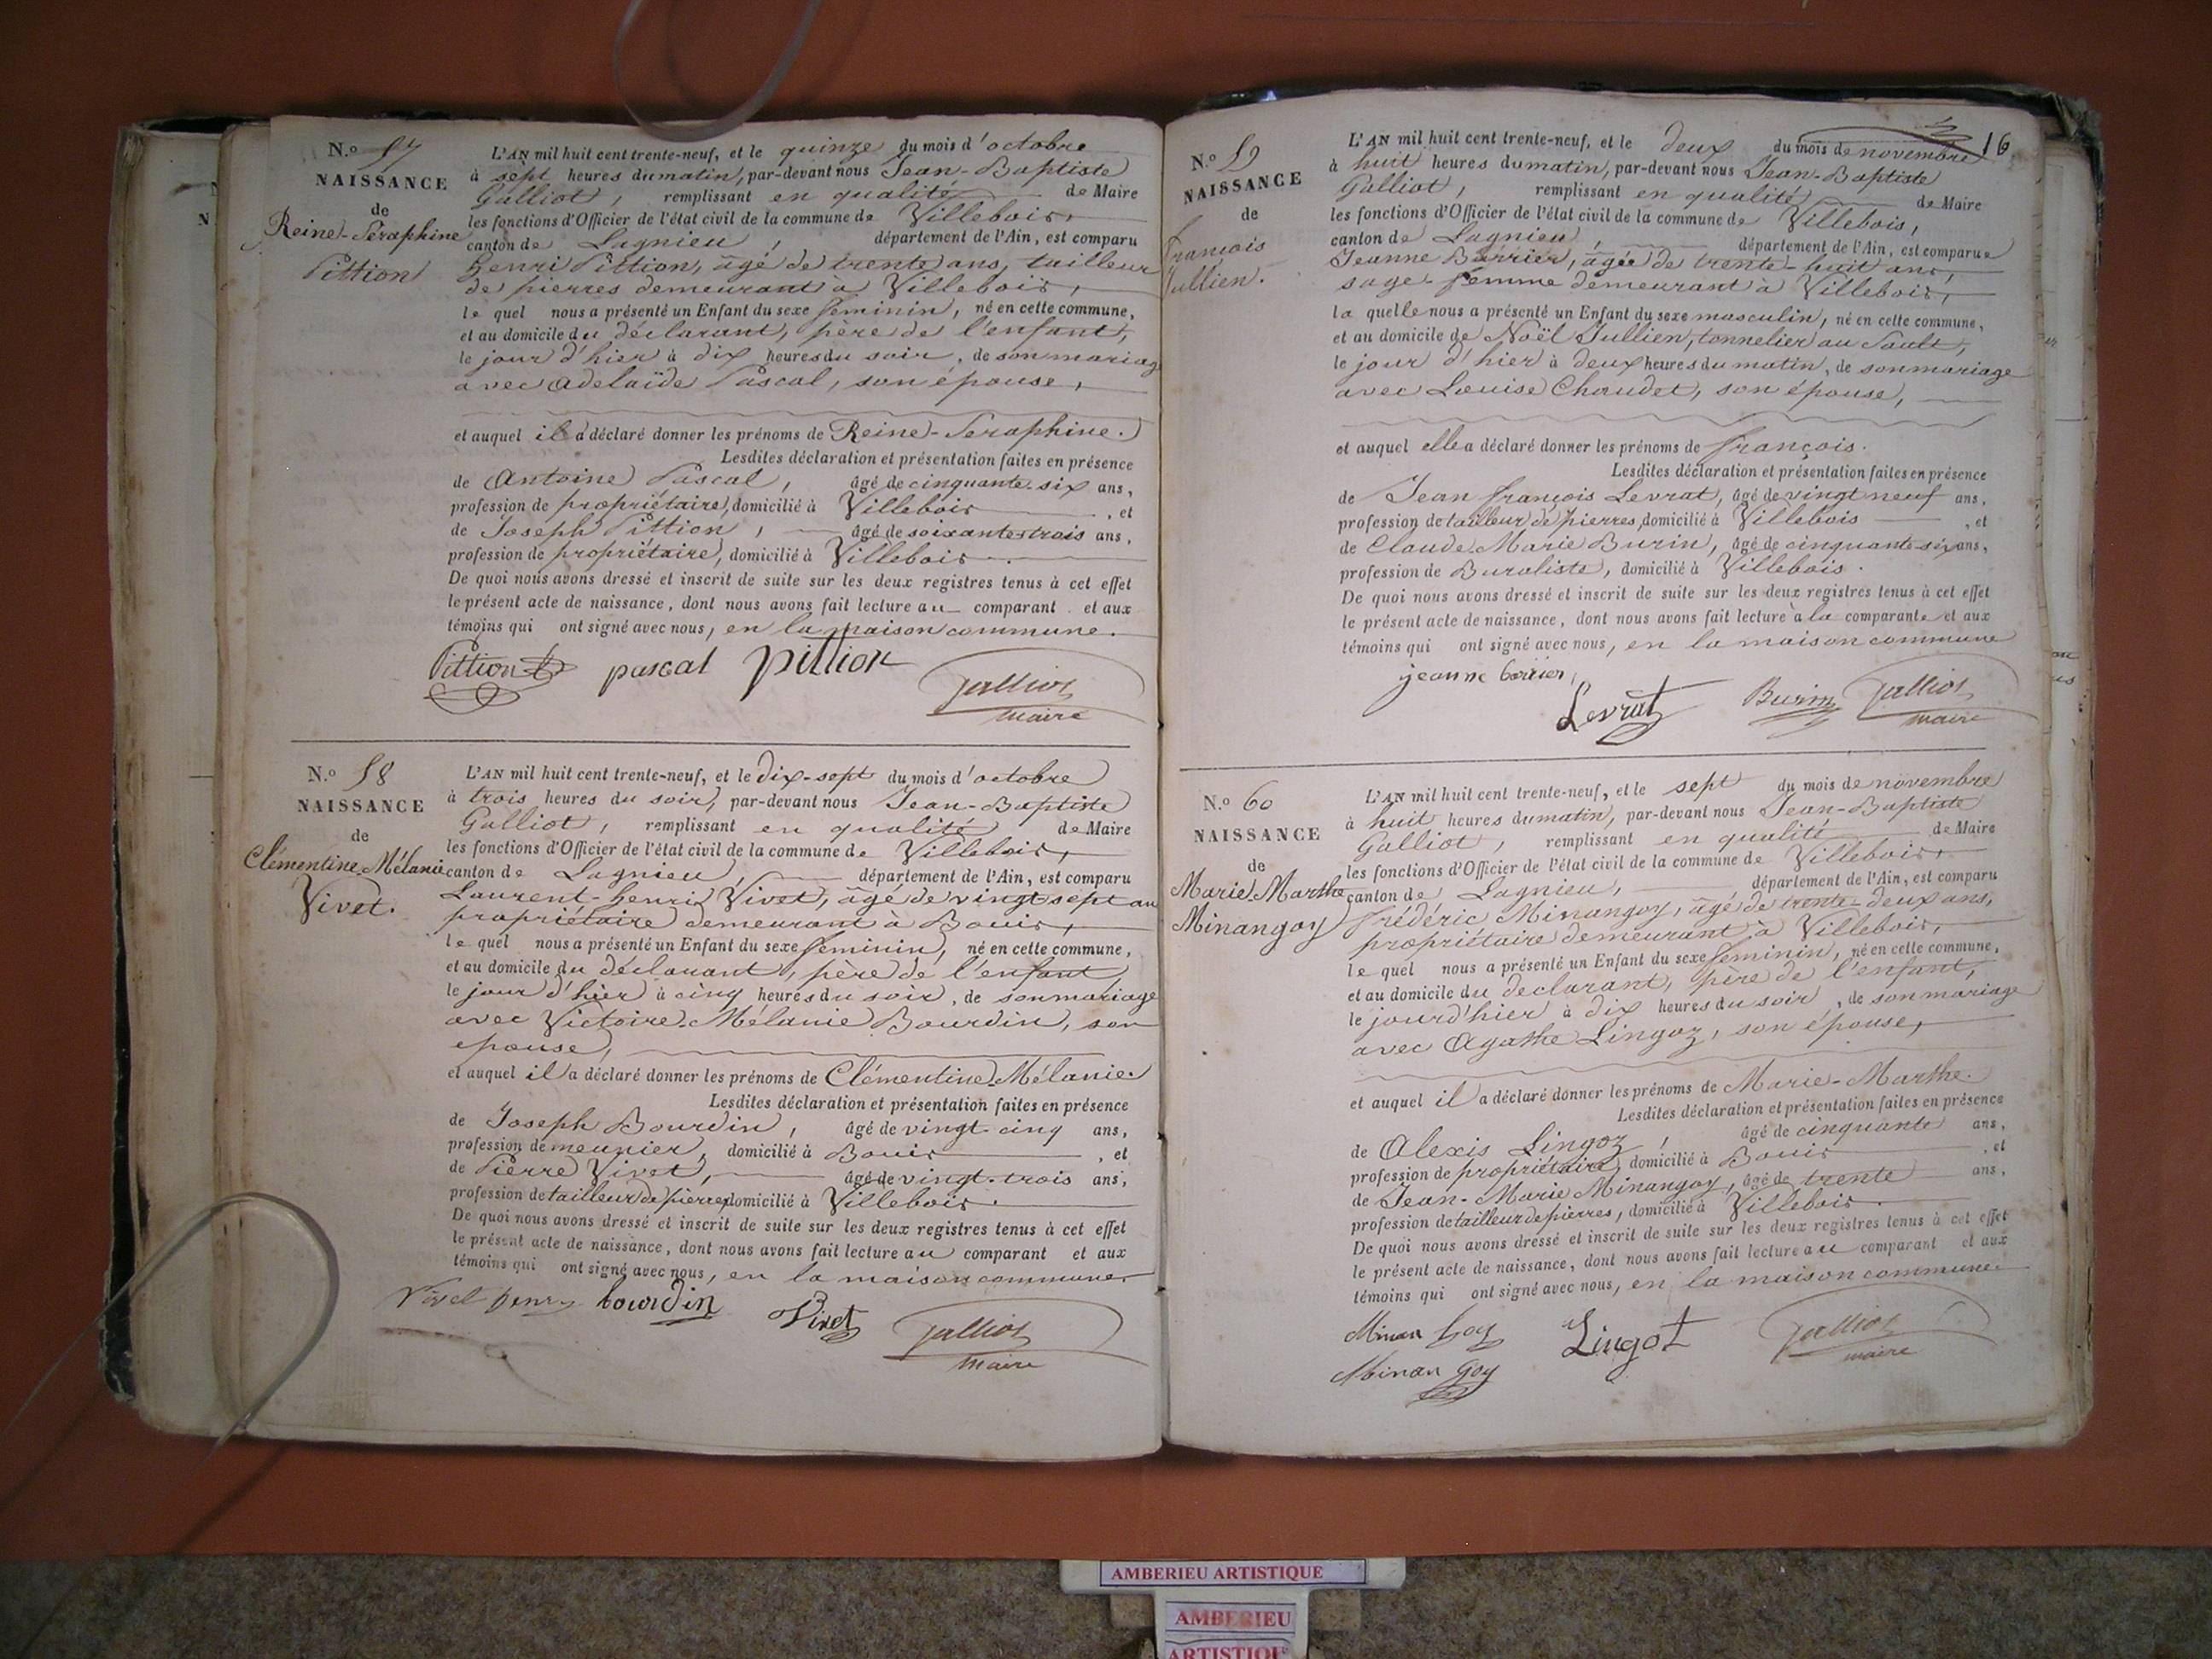 N.o 57
NAISSANCE
de
Reine-Séraphine
Pittion
L'AN mil huit cent trente-neuf, et le quinze du mois d'octobre
à sept heures du matin, par-devant nous Jean-Baptiste
Galliot, remplissant en qualité de Maire
les fonctions d'Officier de l'état civil de la commune de Villebois,
canton de Lagnieu, département de l'Ain, est comparu
henri Pittion, âgé de trente ans, tailleur
de pierres demeurant à Villebois,
le quel nous a présenté un Enfant du sexe féminin, né en cette commune,
et au domicile du déclarant, père de l'enfant,
le jour d'hier à dix heures du soir, de son mariage
avec adelaïde Pascal, son épouse,
et auquel il a déclaré donner les prénoms de Reine-Seraphine.
Lesdites déclaration et présentation faites en présence
de Antoine Pascal, âgé de cinquante-six ans,
profession de propriétaire, domicilié à Villebois, et
de Joseph Pittion, âgé de soixante-trois ans,
profession de propriétaire, domicilié à Villebois.
De quoi nous avons dressé et inscrit de suite sur les deux registres tenus à cet effet
le présent acte de naissance, dont nous avons fait lecture au comparant et aux
témoins qui ont signé avec nous, en la maison commune.
Pittion pascal pittion Galliot
maire
N.o 58
NAISSANCE
de
Clémentine-Mélanie
Vivet.
L'AN mil huit cent trente-neuf, et le dix-sept du mois d'octobre
à trois heures du soir, par-devant nous Jean-Baptiste
Galliot, remplissant en qualité de Maire
les fonctions d'Officier de l'état civil de la commune de Villebois,
canton de Lagnieu, département de l'Ain, est comparu
Laurent-henri Vivet, âgé de vingt sept an
propriétaire demeurant à Bouis,
le quel nous a présenté un Enfant du sexe féminin, né en cette commune,
et au domicile du déclarant, père de l'enfant,
le jour d'hier à cinq heures du soir, de son mariage
avec Victoire-Mélanie Bourdin, son
epouse,
et auquel il a déclaré donner les prénoms de Clémentine-Mélanie.
Lesdites déclaration et présentation faites en présence
de Joseph Bourdin, âgé de vingt-cinq ans,
profession de meunier, domicilié à Bouis, et
de Pierre Vivet, âgé de vingt-trois ans,
profession de tailleur de pierres, domicilié à Villebois.
De quoi nous avons dressé et inscrit de suite sur les deux registres tenus à cet effet
le présent acte de naissance, dont nous avons fait lecture au comparant et aux
témoins qui ont signé avec nous, en la maison commune.
Vivet henry bourdin Vivet Galliot
maire
16
N.o 59
NAISSANCE
de
François
Jullien.
L'AN mil huit cent trente-neuf, et le deux du mois de novembre
à huit heures du matin, par-devant nous Jean-Baptiste
Galliot, remplissant en qualité de Maire
les fonctions d'Officier de l'état civil de la commune de Villebois,
canton de Lagnieu, département de l'Ain, est comparue
Jeanne Berrier, âgée de trente-huit ans,
sage-femme demeurant à Villebois,
la quelle nous a présenté un Enfant du sexe masculin, né en cette commune,
et au domicile de Noël Jullien, tonnelier au Sault,
le jour d'hier à deux heures du matin, de son mariage
avec Louise Chaudet, son épouse,
et auquel elle a déclaré donner les prénoms de françois.
Lesdites déclaration et présentation faites en présence
de Jean françois Levrat, âgé de vingt neuf ans,
profession de tailleur de pierres, domicilié à Villebois, et
de Claude Marie Burin, âgé de cinquante-six ans,
profession de Buraliste, domicilié à Villebois.
De quoi nous avons dressé et inscrit de suite sur les deux registres tenus à cet effet
le présent acte de naissance, dont nous avons fait lecture à la comparante et aux
témoins qui ont signé avec nous, en la maison commune
jeanne berrier,
Levrat Burin Galliot
maire
N.o 60
NAISSANCE
de
Marie-Marthe
Minangoy
L'AN mil huit cent trente-neuf, et le sept du mois de novembre
à huit heures du matin, par-devant nous Jean-Baptiste
Galliot, remplissant en qualité de Maire
les fonctions d'Officier de l'état civil de la commune de Villebois,
canton de Lagnieu, département de l'Ain, est comparu
frédéric Minangoy, âgé de trente-deux ans,
propriétaire demeurant à Villebois,
le quel nous a présenté un Enfant du sexe féminin, né en cette commune,
et au domicile du declarant, père de l'enfant,
le jour d'hier à dix heures du soir, de son mariage
avec Agathe Lingoz, son épouse,
et auquel il a déclaré donner les prénoms de Marie-Marthe.
Lesdites déclaration et présentation faites en présence
de Alexis Lingoz, âgé de cinquante ans,
profession de propriétaire, domicilié à Bouis, et
de Jean-Marie Minangoy, âgé de trente ans,
profession de tailleur de pierres, domicilié à Villebois.
De quoi nous avons dressé et inscrit de suite sur les deux registres tenus à cet effet
le présent acte de naissance, dont nous avons fait lecture au comparant et aux
témoins qui ont signé avec nous, en la maison commune.
Minan Goy Lingot Galliot
maire
Minan Goy
AMBERIEU ARTISTIQUE
AMBERIEU
ARTISTIQUE